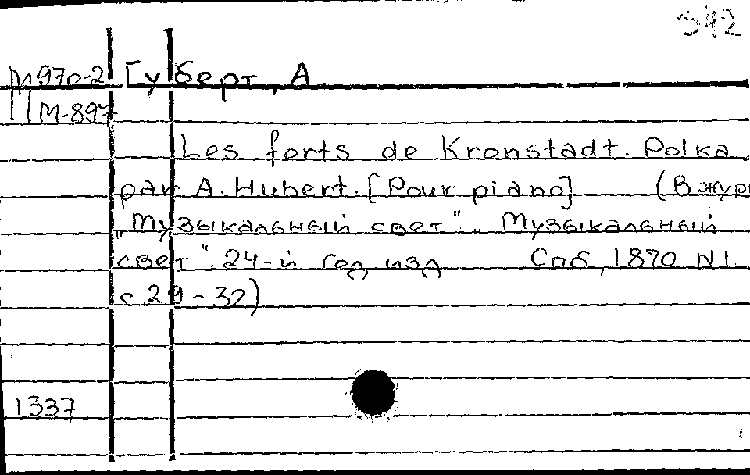 342
М970-2 Губерт, А
М-897
Les forts de Kronstadt. Polka
par A. Hubert. [Pour piano] (В жур
"Музыкальный свет". Музыкальный
свет". 24-й год изд Спб, 1870 N1.
с 29-32)
1337